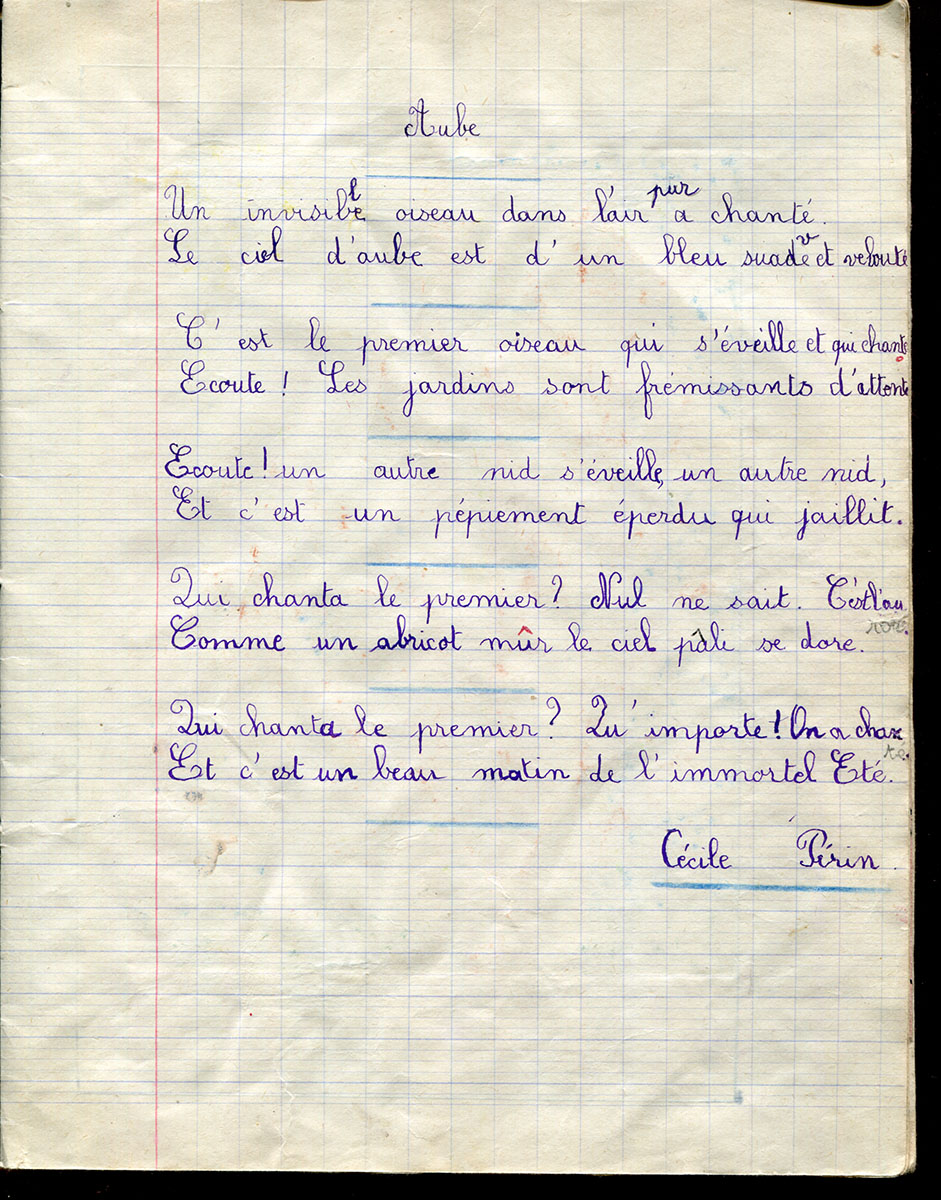 Aube
Un invisible oiseau dans l'air pur a chanté.
Le ciel d'aube est d'un bleu suave et velouté
C'est le premier oiseau qui s'éveille et qui chante
Ecoute ! Les jardins sont frémissants d'attente
Ecoute ! un autre nid s'éveille, un autre nid,
Et c'est un pépiement éperdu qui jaillit.
Qui chanta le premier ? Nul ne sait. C'est l'au
rore.
Comme un abricot mûr le ciel pâli se dore.
Qui chanta le premier ? Qu'importe ! On a chan
té.
Et c'est un beau matin de l'immortel Eté.
Cécile Périn.